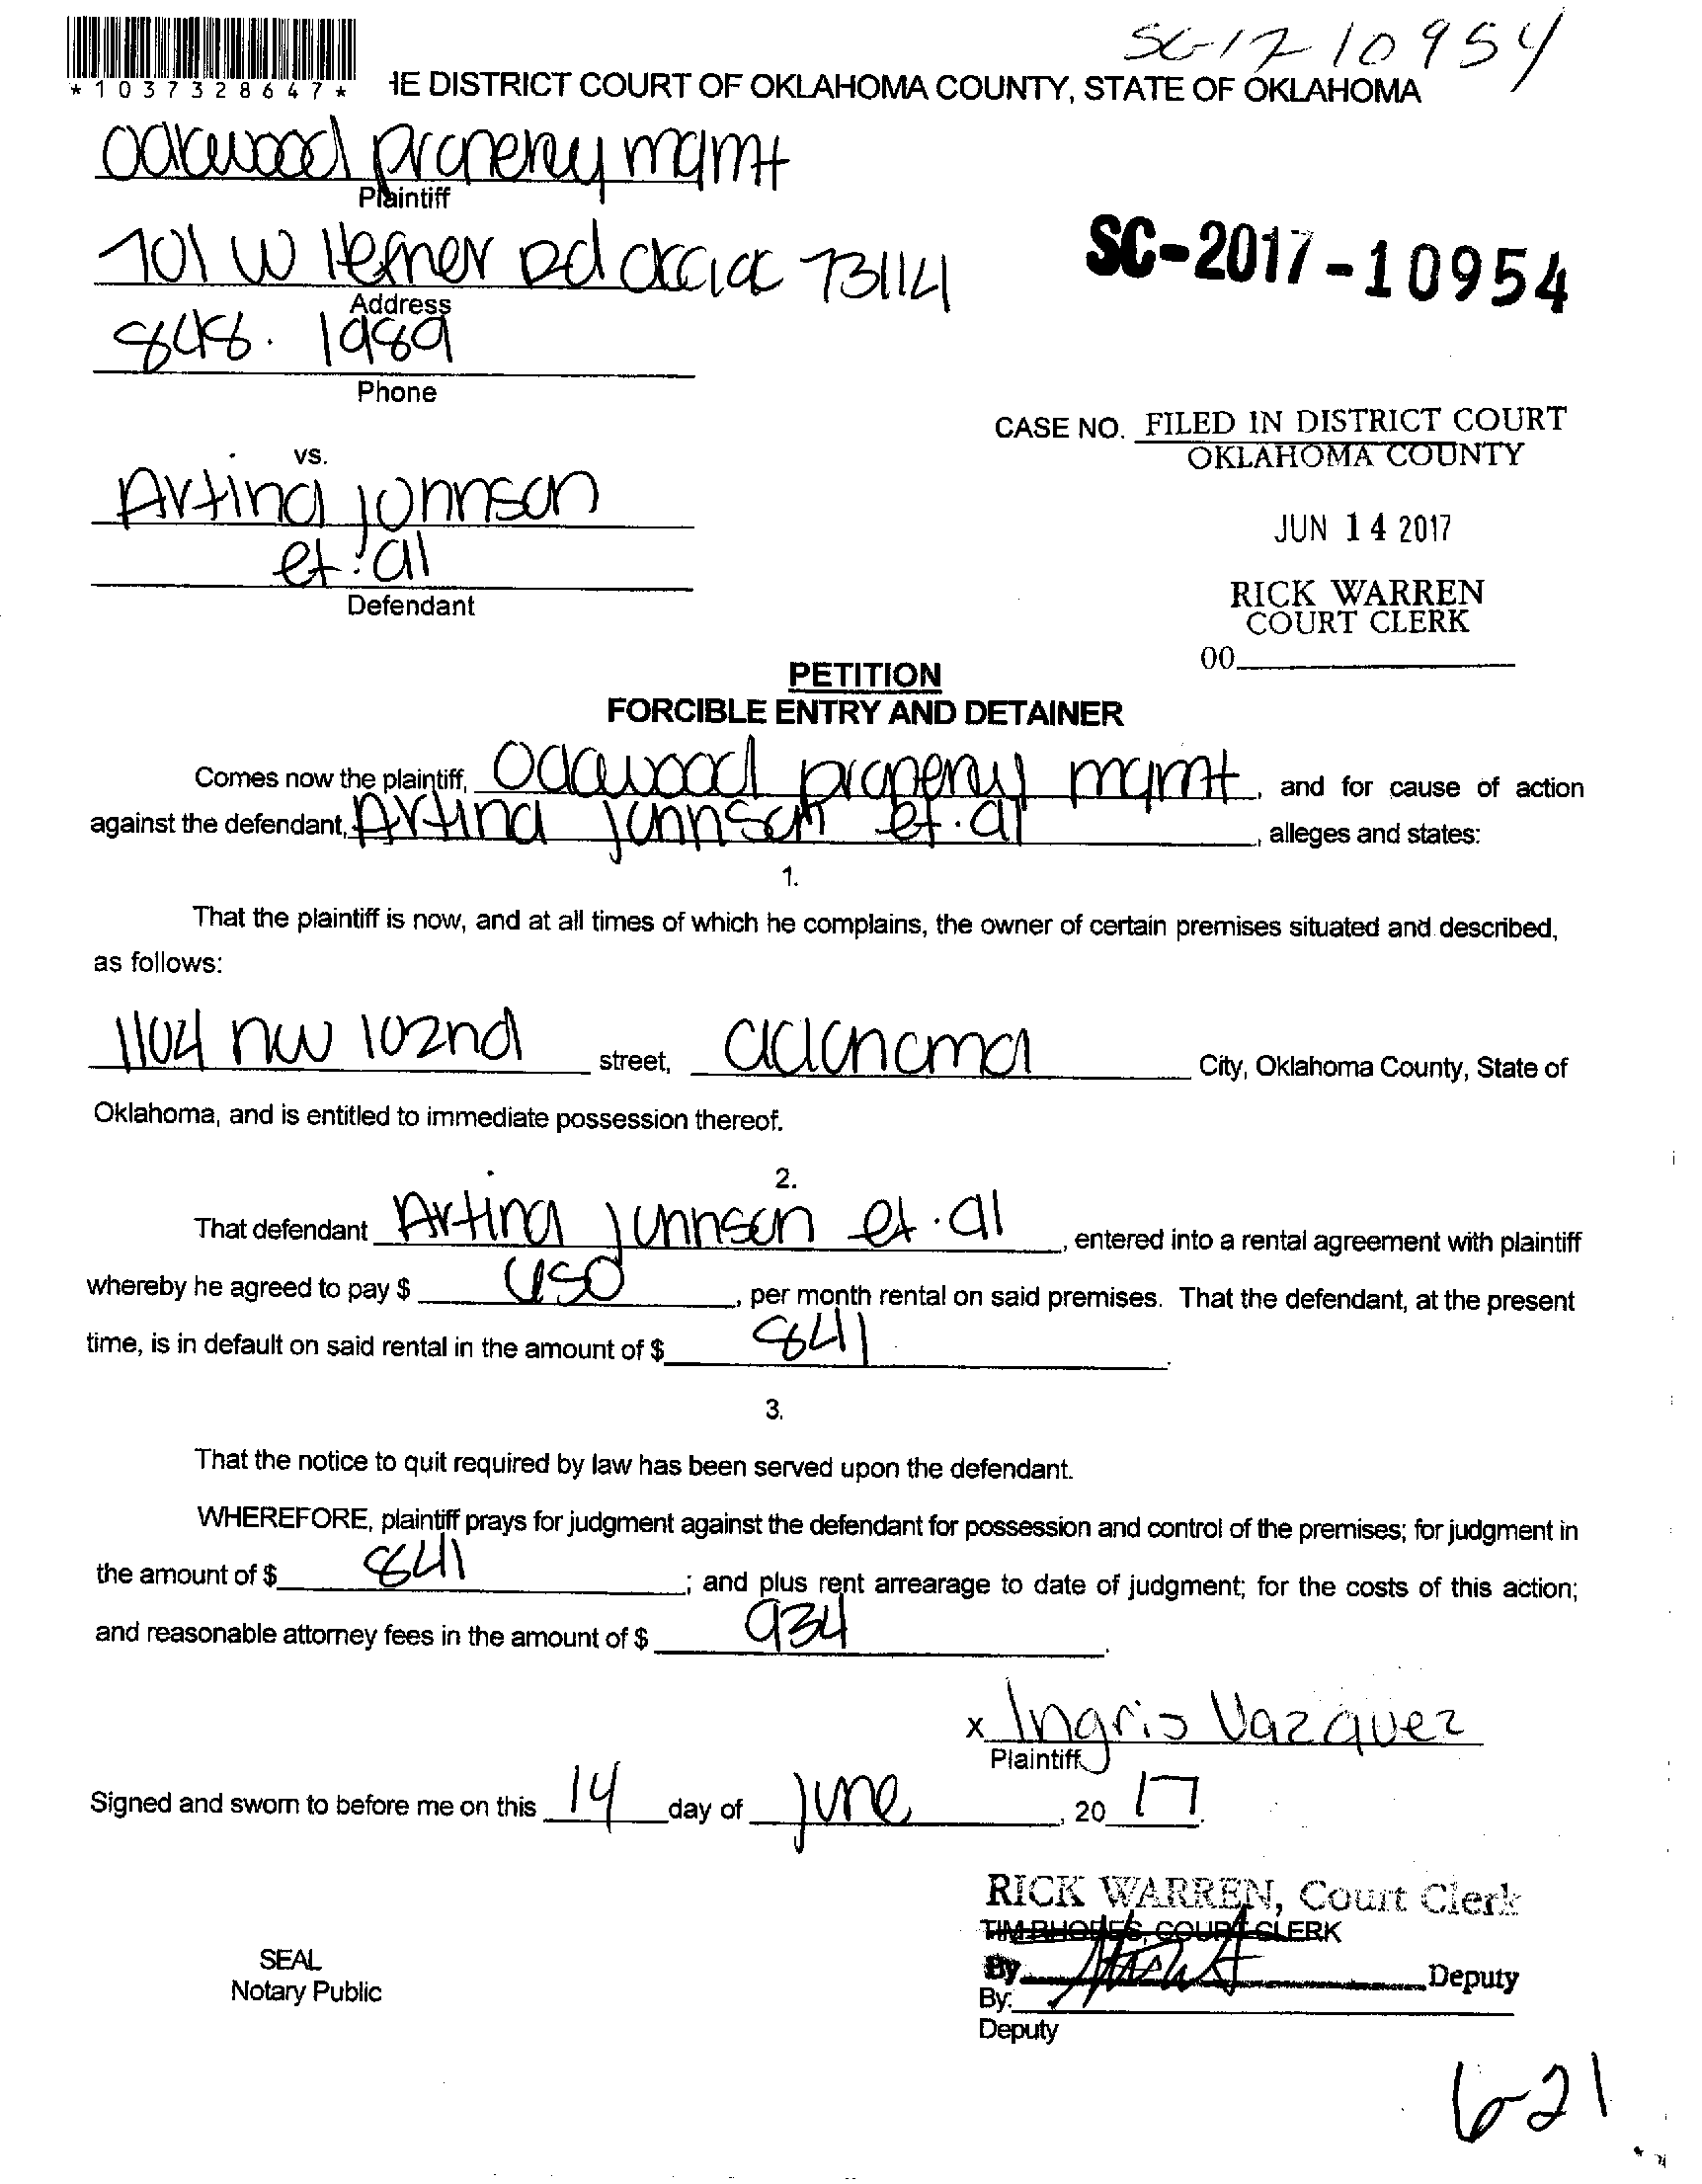 SC-17-10954
*1037328647* IE DISTRICT COURT OF OKLAHOMA COUNTY, STATE OF OKLAHOMA
Oakwood property mgmt
Plaintiff
701 W Hefner Rd 73114
Address
SC-2017-10954
848. 1989
Phone
CASE NO. FILED IN DISTRICT COURT
OKLAHOMA COUNTY
vs.
Artina Johnson
JUN 14 2017
et. al
Defendant
RICK WARREN
COURT CLERK
00
PETITION
FORCIBLE ENTRY AND DETAINER
Comes now the plaintiff, Oakwood property mgmt, and for cause of action
against the defendant, Artina Johnson et. al, alleges and states:
1.
That the plaintiff is now, and at all times of which he complains, the owner of certain premises situated and described,
as follows:
1104 nw 102nd street, Oklahoma City, Oklahoma County, State of
Oklahoma, and is entitled to immediate possession thereof.
2.
That defendant Artina Johnson et. al, entered into a rental agreement with plaintiff
whereby he agreed to pay $, per month rental on said premises. That the defendant, at the present
time, is in default on said rental in the amount of $ 841.
3.
That the notice to quit required by law has been served upon the defendant.
WHEREFORE, plaintiff prays for judgment against the defendant for possession and control of the premises; for judgment in
the amount of $ 841; and plus rent arrearage to date of judgment; for the costs of this action;
and reasonable attorney fees in the amount of $ 934.
x Ingris Vazquez
Plaintiff
Signed and sworn to before me on this 14 day of June, 20 17.
RICK WARREN, Court Clerk
TIM RHODES, COURT CLERK
SEAL
By Deputy
Notary Public
By:
Deputy
6-21